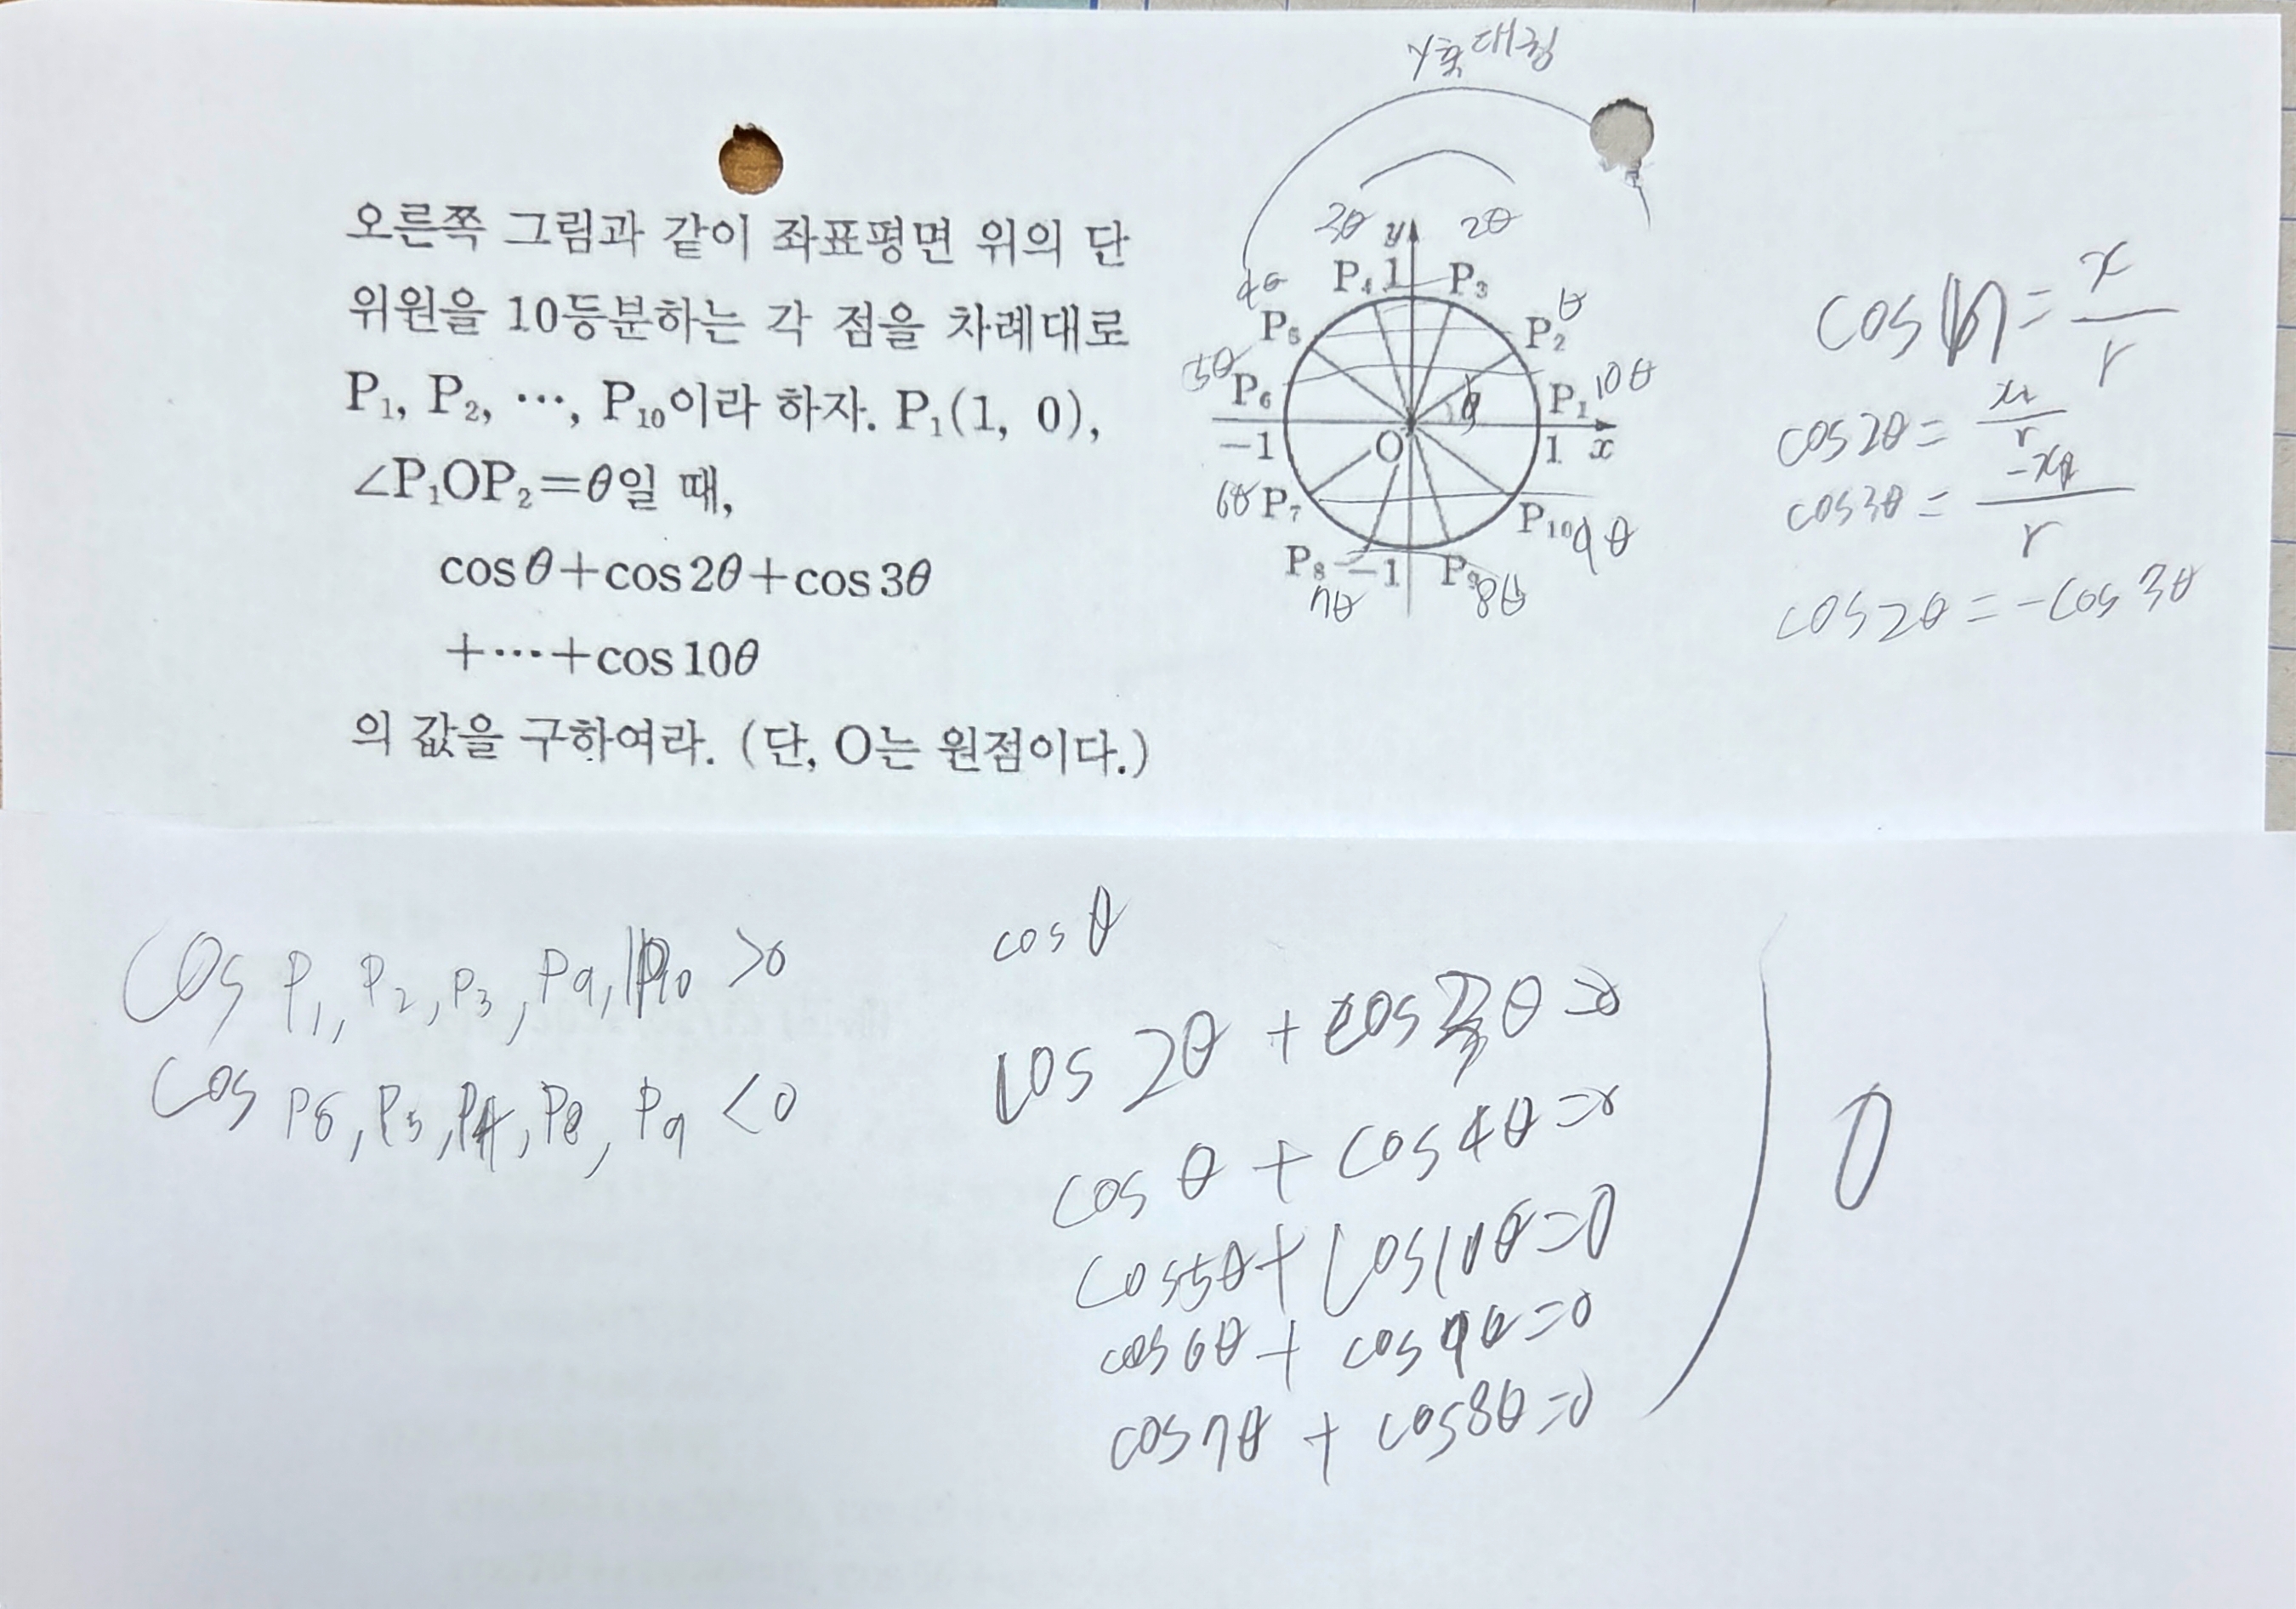 오른쪽 그림과 같이 좌표평면 위의 단
위원을 10등분하는 각 점을 차례대로
P₁, P₂, ⋯, P₁₀이라 하자. P₁(1, 0),
∠P₁OP₂=θ일 때,
cosθ+cos2θ+cos3θ
+⋯+cos10θ
의 값을 구하여라. (단, O는 원점이다.)
y축 대칭
3θ y 2θ
4θ P₄ 1 P₃ θ
P₅ P₂
5θ P₆ θ P₁ 10θ
-1 O 1 x
6θ P₇ P₁₀ 9θ
P₈ -1 P₉
7θ 8θ
= x/r
cos2θ = x₂/r
cos3θ = -x₂/r
cos2θ = -cos3θ
cos P₁, P₂, P₃, P₉, P₁₀ >0
cos P6, P5, P4, P8, P9 <0
cosθ
cos2θ + cos3θ=0
cosθ + cos4θ=0
cos5θ+ cos10θ=0
cos6θ + cos9θ=0
cos7θ + cos8θ=0
0